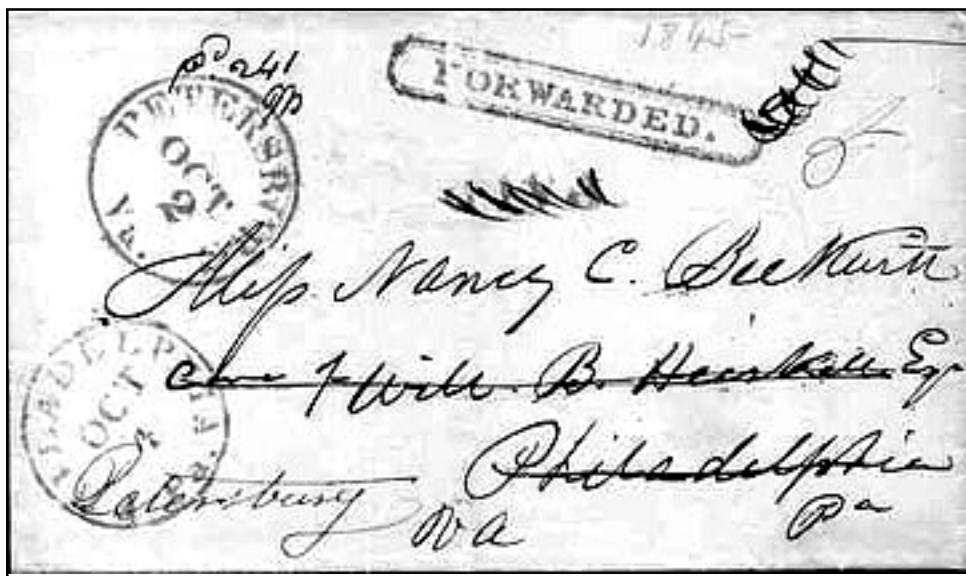 1845
FORWARDED.
PETERSBURG Va.
OCT
2
Miss Nancy C. Beckwith
care of Will. B. Heiskell Esqr
PHILADELPHIA Pa.
OCT
4
Philadelphia
Pa
Petersburg
Va